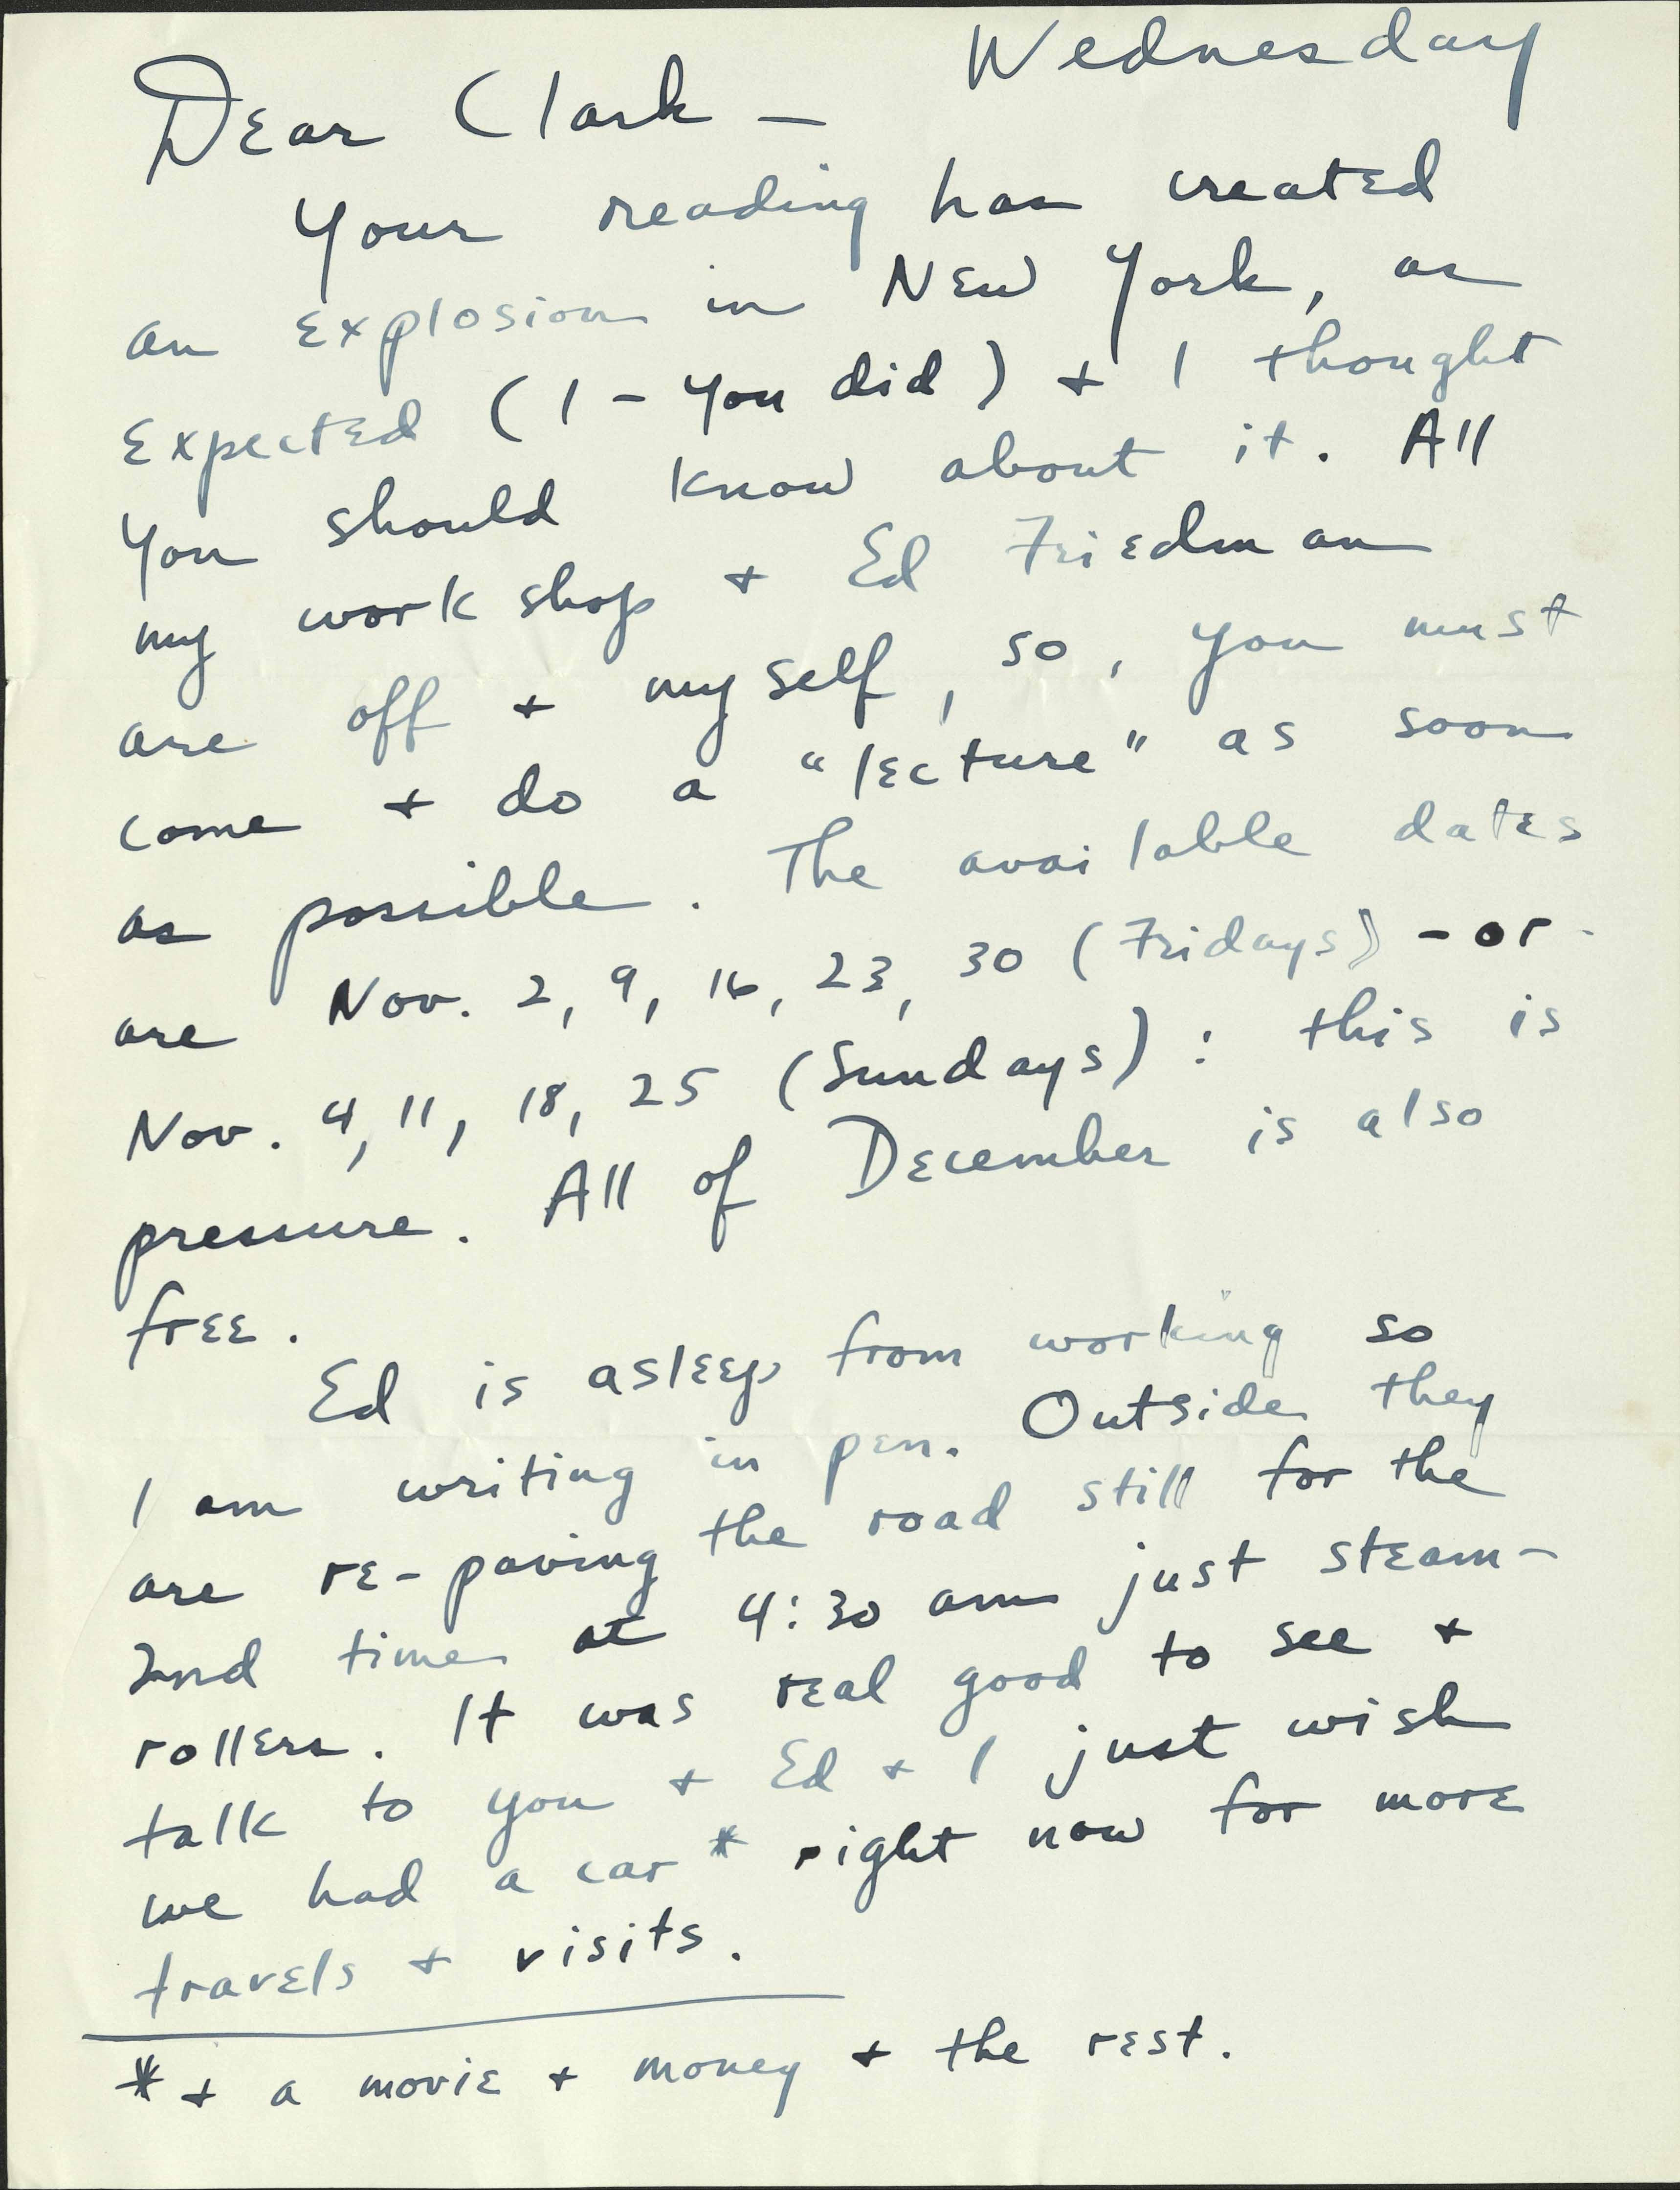 Wednesday
Dear Clark —
Your reading has created
an explosion in New York, as
expected (I - you did) + I thought
you should know about it. All
my work shop + Ed Friedman
are off + my self, so, you must
come + do a "lecture" as soon
as possible. The available dates
are Nov. 2, 9, 16, 23, 30 (Fridays) - or -
Nov. 4, 11, 18, 25 (Sundays) : this is
pressure. All of December is also
free.
Ed is asleep from working so
I am writing in pen. Outside they
are re-paving the road still for the
2nd time at 4:30 am just steam-
rollers. It was real good to see +
talk to you + Ed + I just wish
we had a car * right now for more
travels + visits.
* + a movie + money + the rest.